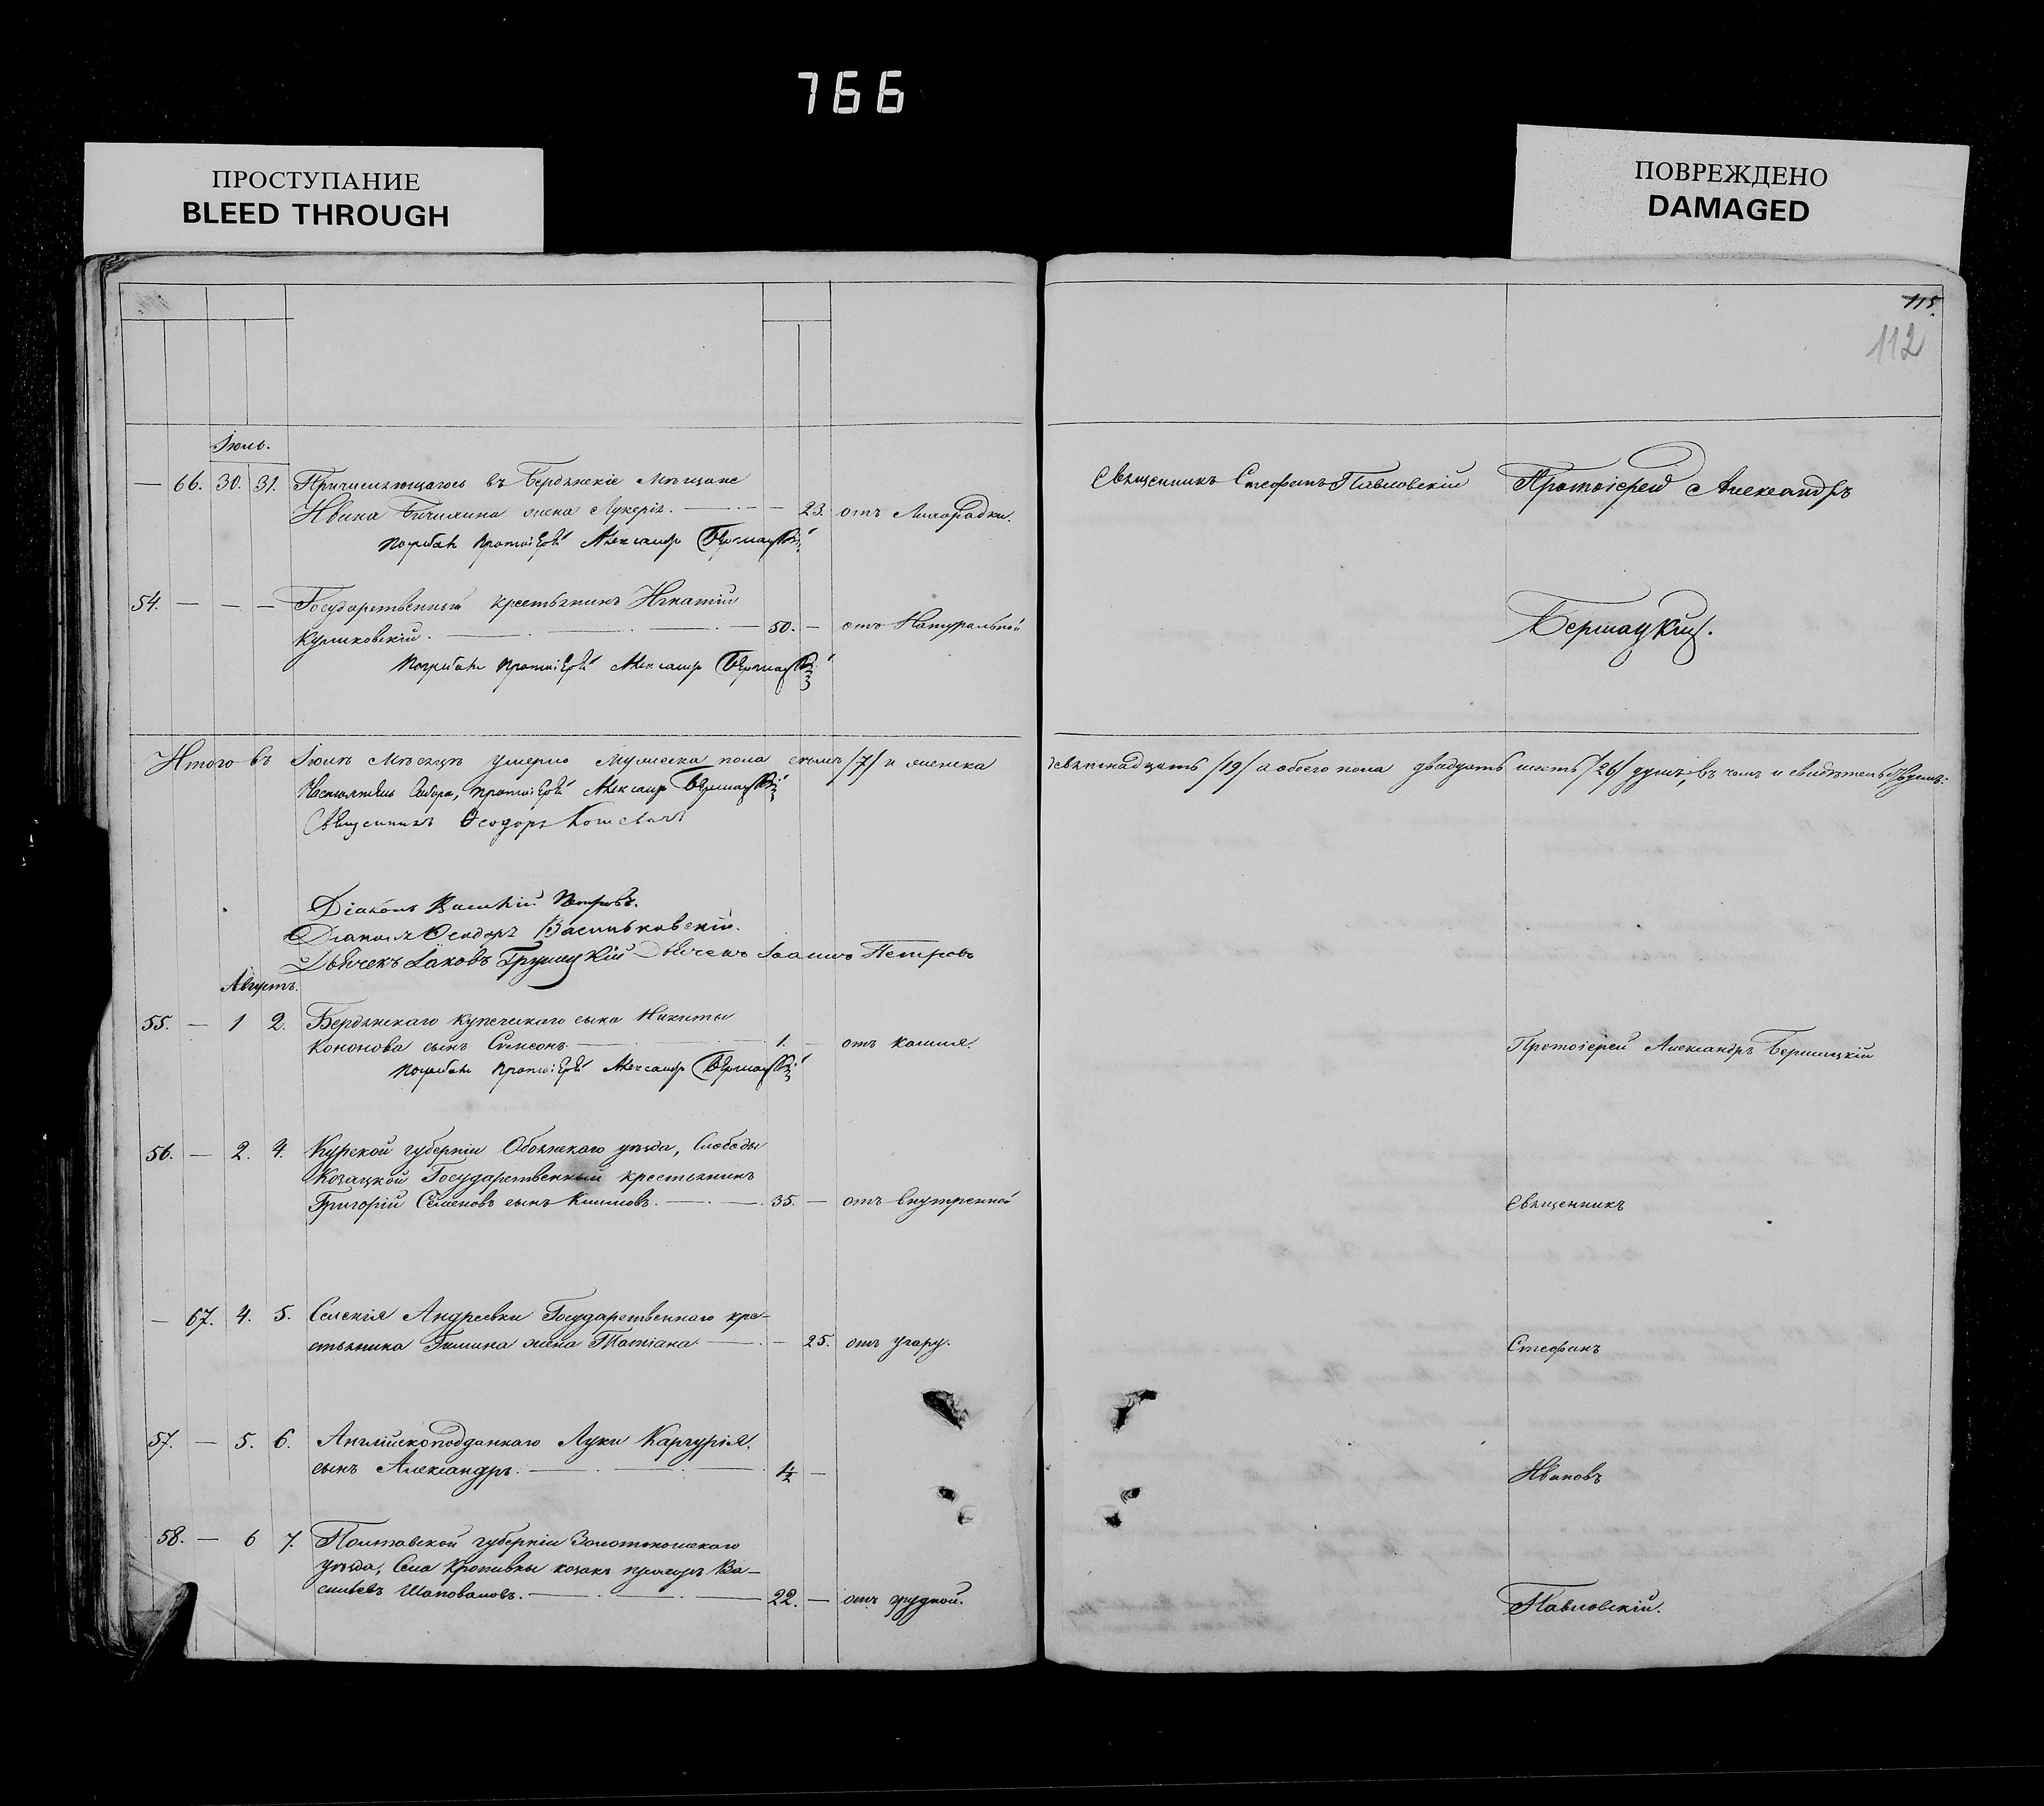 766
ПРОСТУПАНИЕ
BLEED THROUGH
ПОВРЕЖДЕНО
DAMAGED
115.
112
Іюль.
— 66. 30. 31. Причисляющагося въ Бердянскіе мѣщане
Ивана Бичихина жена Лукерія. — 23. отъ Лихорадки.
Погребалъ Протоіерей Александръ Бершацкій
54. — — — Государственный крестьянинъ Игнатій
Куликовскій. — 50. — отъ Натуральной
Погребалъ Протоіерей Александръ Бершацкій
Священникъ Стефанъ Павловскій Протоіерей Александръ
Бершацкій.
Итого въ Іюлѣ мѣсяцѣ умерло мужеска пола семь /7/ и женска девятнадцать /19/ а обоего пола двадцать шесть /26/ душъ, въ чемъ и свидѣтельствуемъ:
Настоятель Собора, Протоіерей Александръ Бершацкій
Священникъ Ѳеодоръ
Діаконъ Василій Петровъ.
Діаконъ Ѳеодоръ Васильковскій.
Дьячекъ Іаковъ Грушецкій Дьячекъ Іоаннъ Петровъ
Августъ.
55. — 1 2. Бердянскаго купеческаго сына Никиты
Кононова сынъ Симеонъ. — 1. — отъ кашля.
Погребалъ Протоіерей Александръ Бершацкій
Протоіерей Александръ Бершацкій
56. — 2. 4. Курской губерніи Обоянскаго уѣзда, Слободы
Козацкой Государственный крестьянинъ
Григорій Семеновъ сынъ Климовъ. — 35. — отъ внутренной
Священникъ
— 67. 4. 5. Селенія Андреевки Государственнаго кре-
стьянина жена Татіана. — 25. отъ угару.
Стефанъ
57. — 5. 6. Англійскоподданнаго Луки Каргурія.
сынъ Александръ. — 1/2 —
Ивановъ
58. — 6 7. Полтавской губерніи Золотоношскаго
уѣзда, Села Кропивны козакъ Прохоръ Ва-
сильевъ Шаповаловъ. — 22. — отъ грудной.
Павловскій.